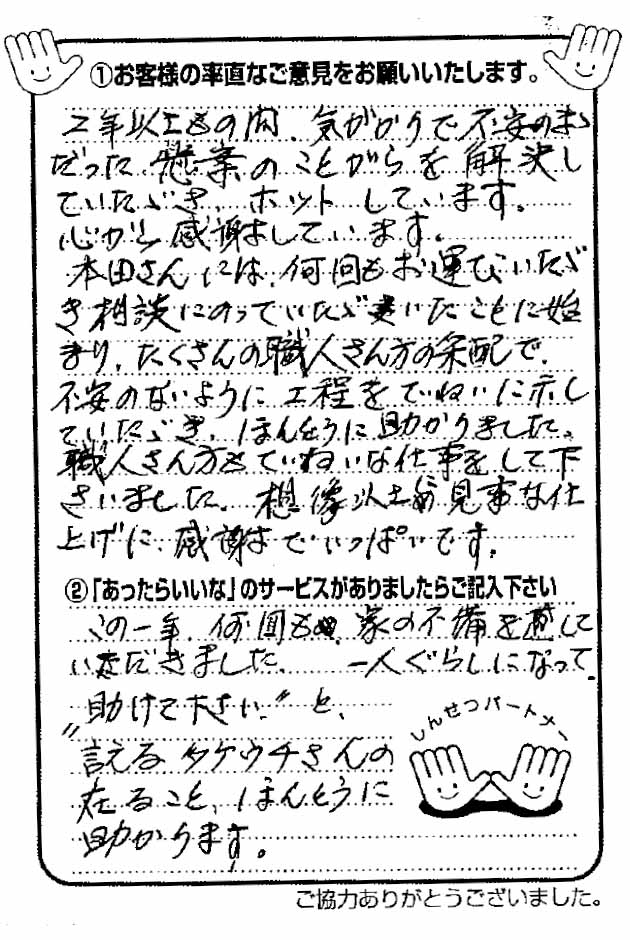 ①お客様の率直なご意見をお願いいたします。
2年以上もの間、気がかりで不安のま
だった懸案のことがらを解決し
ていただき、ホットしています。
心から感謝しています。
本田さんには、何回もお運びいただ
き相談にのっていただ いたことに始
まり、たくさんの職人さん方の采配で、
不安のないように工程をていねいに示し
ていただき、ほんとうに助かりました。
職人さん方もていねいな仕事をして下
さいました。想像以上の見事な仕
上げに、感謝でいっぱいです。
②「あったらいいな」のサービスがありましたらご記入下さい
この一年、何回も、家の不備を直して
いただきました。 一人ぐらしになって、
"助けて下さい"と、
言えるタケウチさんの
在ること、ほんとうに
助かります。
しんせつパートナー
ご協力ありがとうございました。